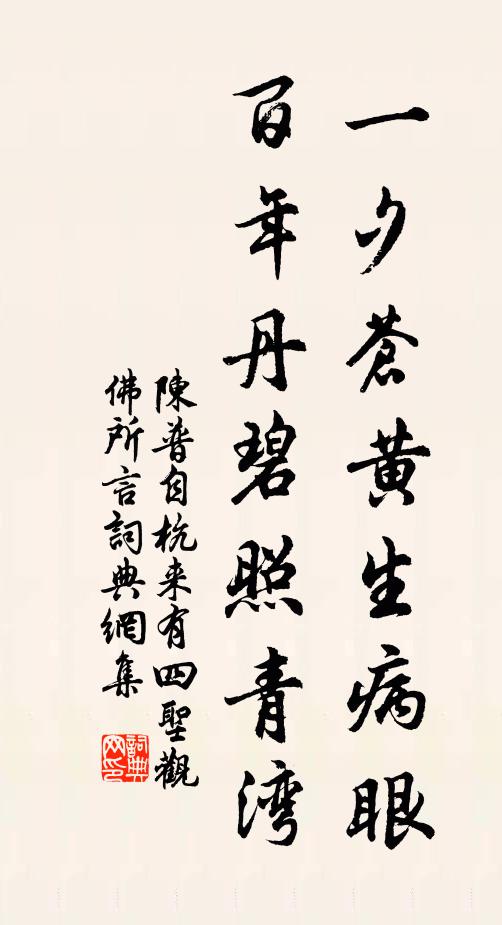 一夕蒼黃生病眼
百年丹碧照青湾
陳普自杭来有四聖觀
佛所言詞典網集
詞典网印